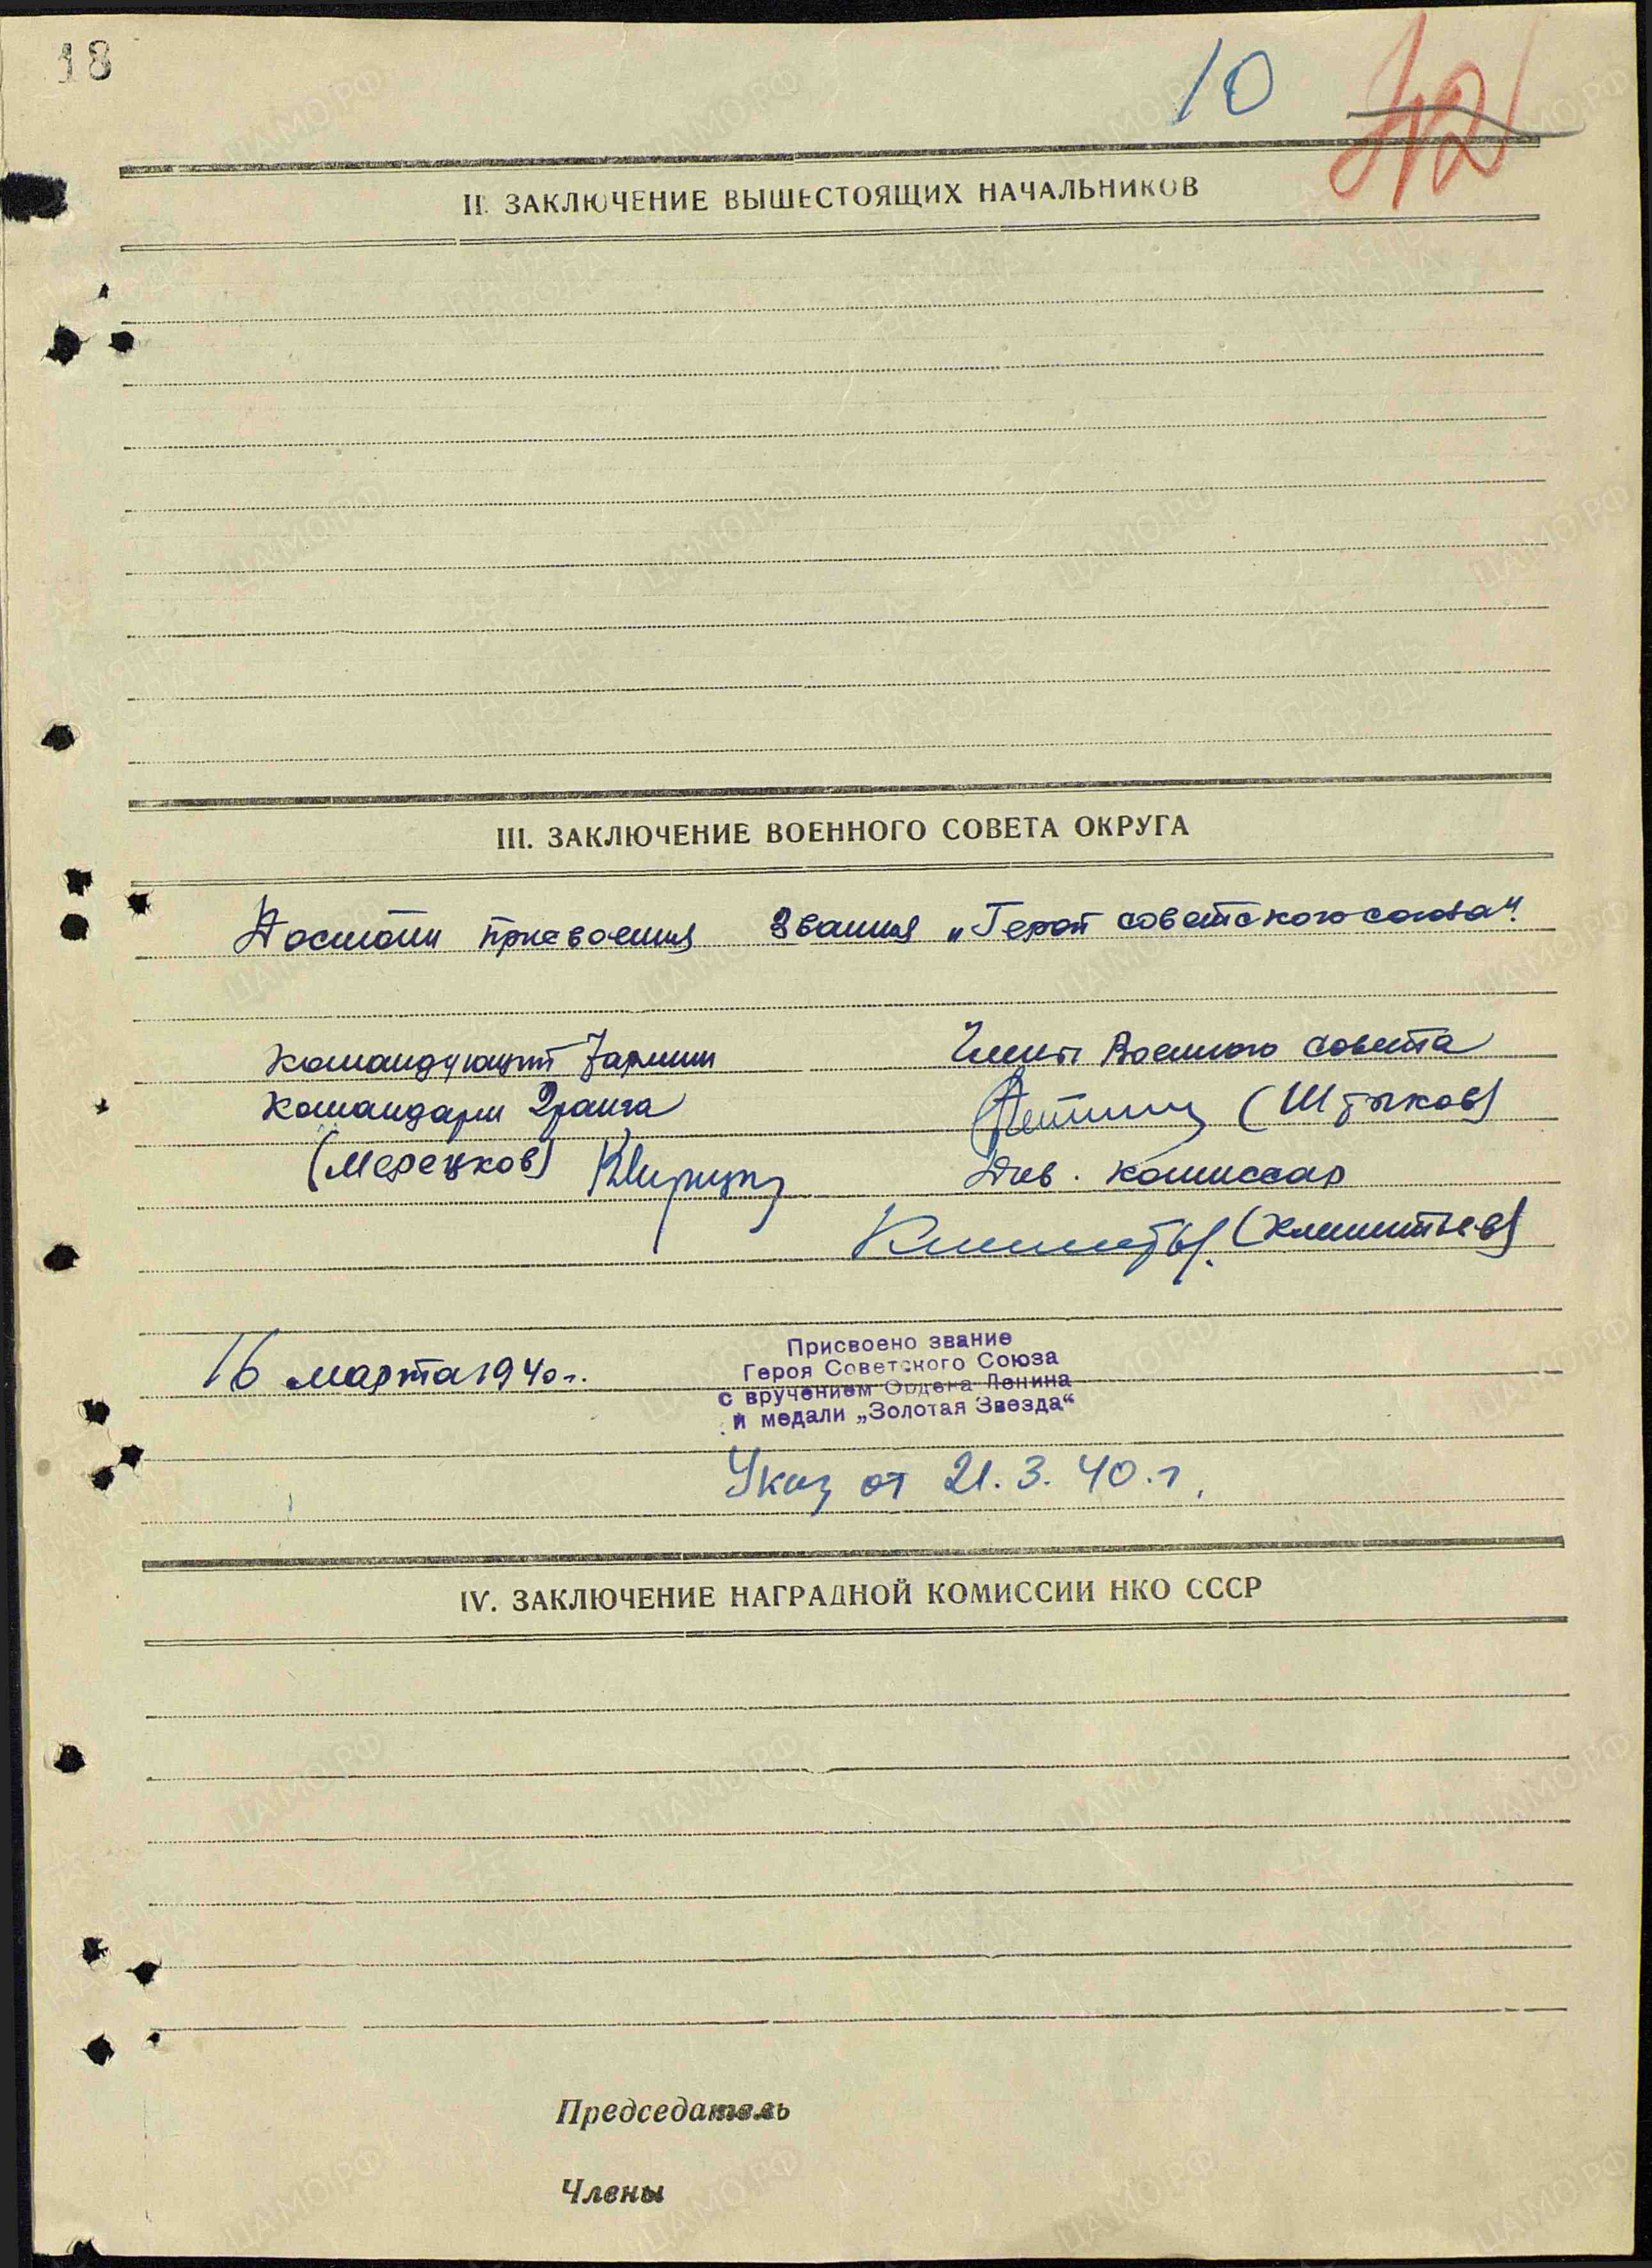 18
10
42
II. ЗАКЛЮЧЕНИЕ ВЫШЕСТОЯЩИХ НАЧАЛЬНИКОВ
III. ЗАКЛЮЧЕНИЕ ВОЕННОГО СОВЕТА ОКРУГА
Достоин присвоения звания „Герой советского союза".
Командующий 7армии
Командарм 2ранга
(Мерецков)
Члены Военного совета
(Штыков)
Див. комиссар
(Клементьев)
16 марта 1940 г.
Присвоено звание
Героя Советского Союза
с вручением Ордена Ленина
и медали „Золотая Звезда“
Указ от 21.3.40.г.
IV. ЗАКЛЮЧЕНИЕ НАГРАДНОЙ КОМИССИИ НКО СССР
Председатель
Члены
ЦАМО.РФ
ПАМЯТЬ НАРОДА